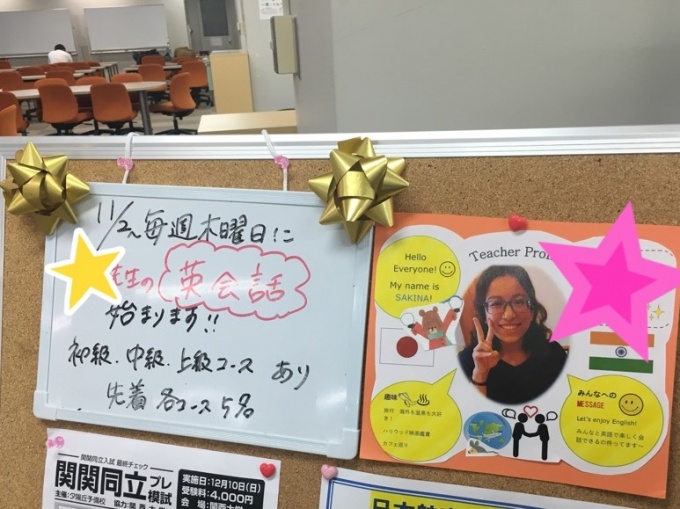 11/2～ 毎週木曜日に
生の 英会話
始まります!!
初級.中級.上級コース あり
先着 各コース 5名
Teacher Pro
Hello
Everyone!
My name is
SAKINA!
趣味
旅行 海外も温泉も大好き!
ハリウッド映画鑑賞
カフェ巡り
みんなへの
MESSAGE
Let's enjoy English!
みんなと英語で楽しく会
話できるの待ってます～
関関同立入試 最終チェック
関関同立プレ
模試
主催:夕陽丘予備校
実施日:12月10日(日)
受験料:4,000円
会 場:関西大学